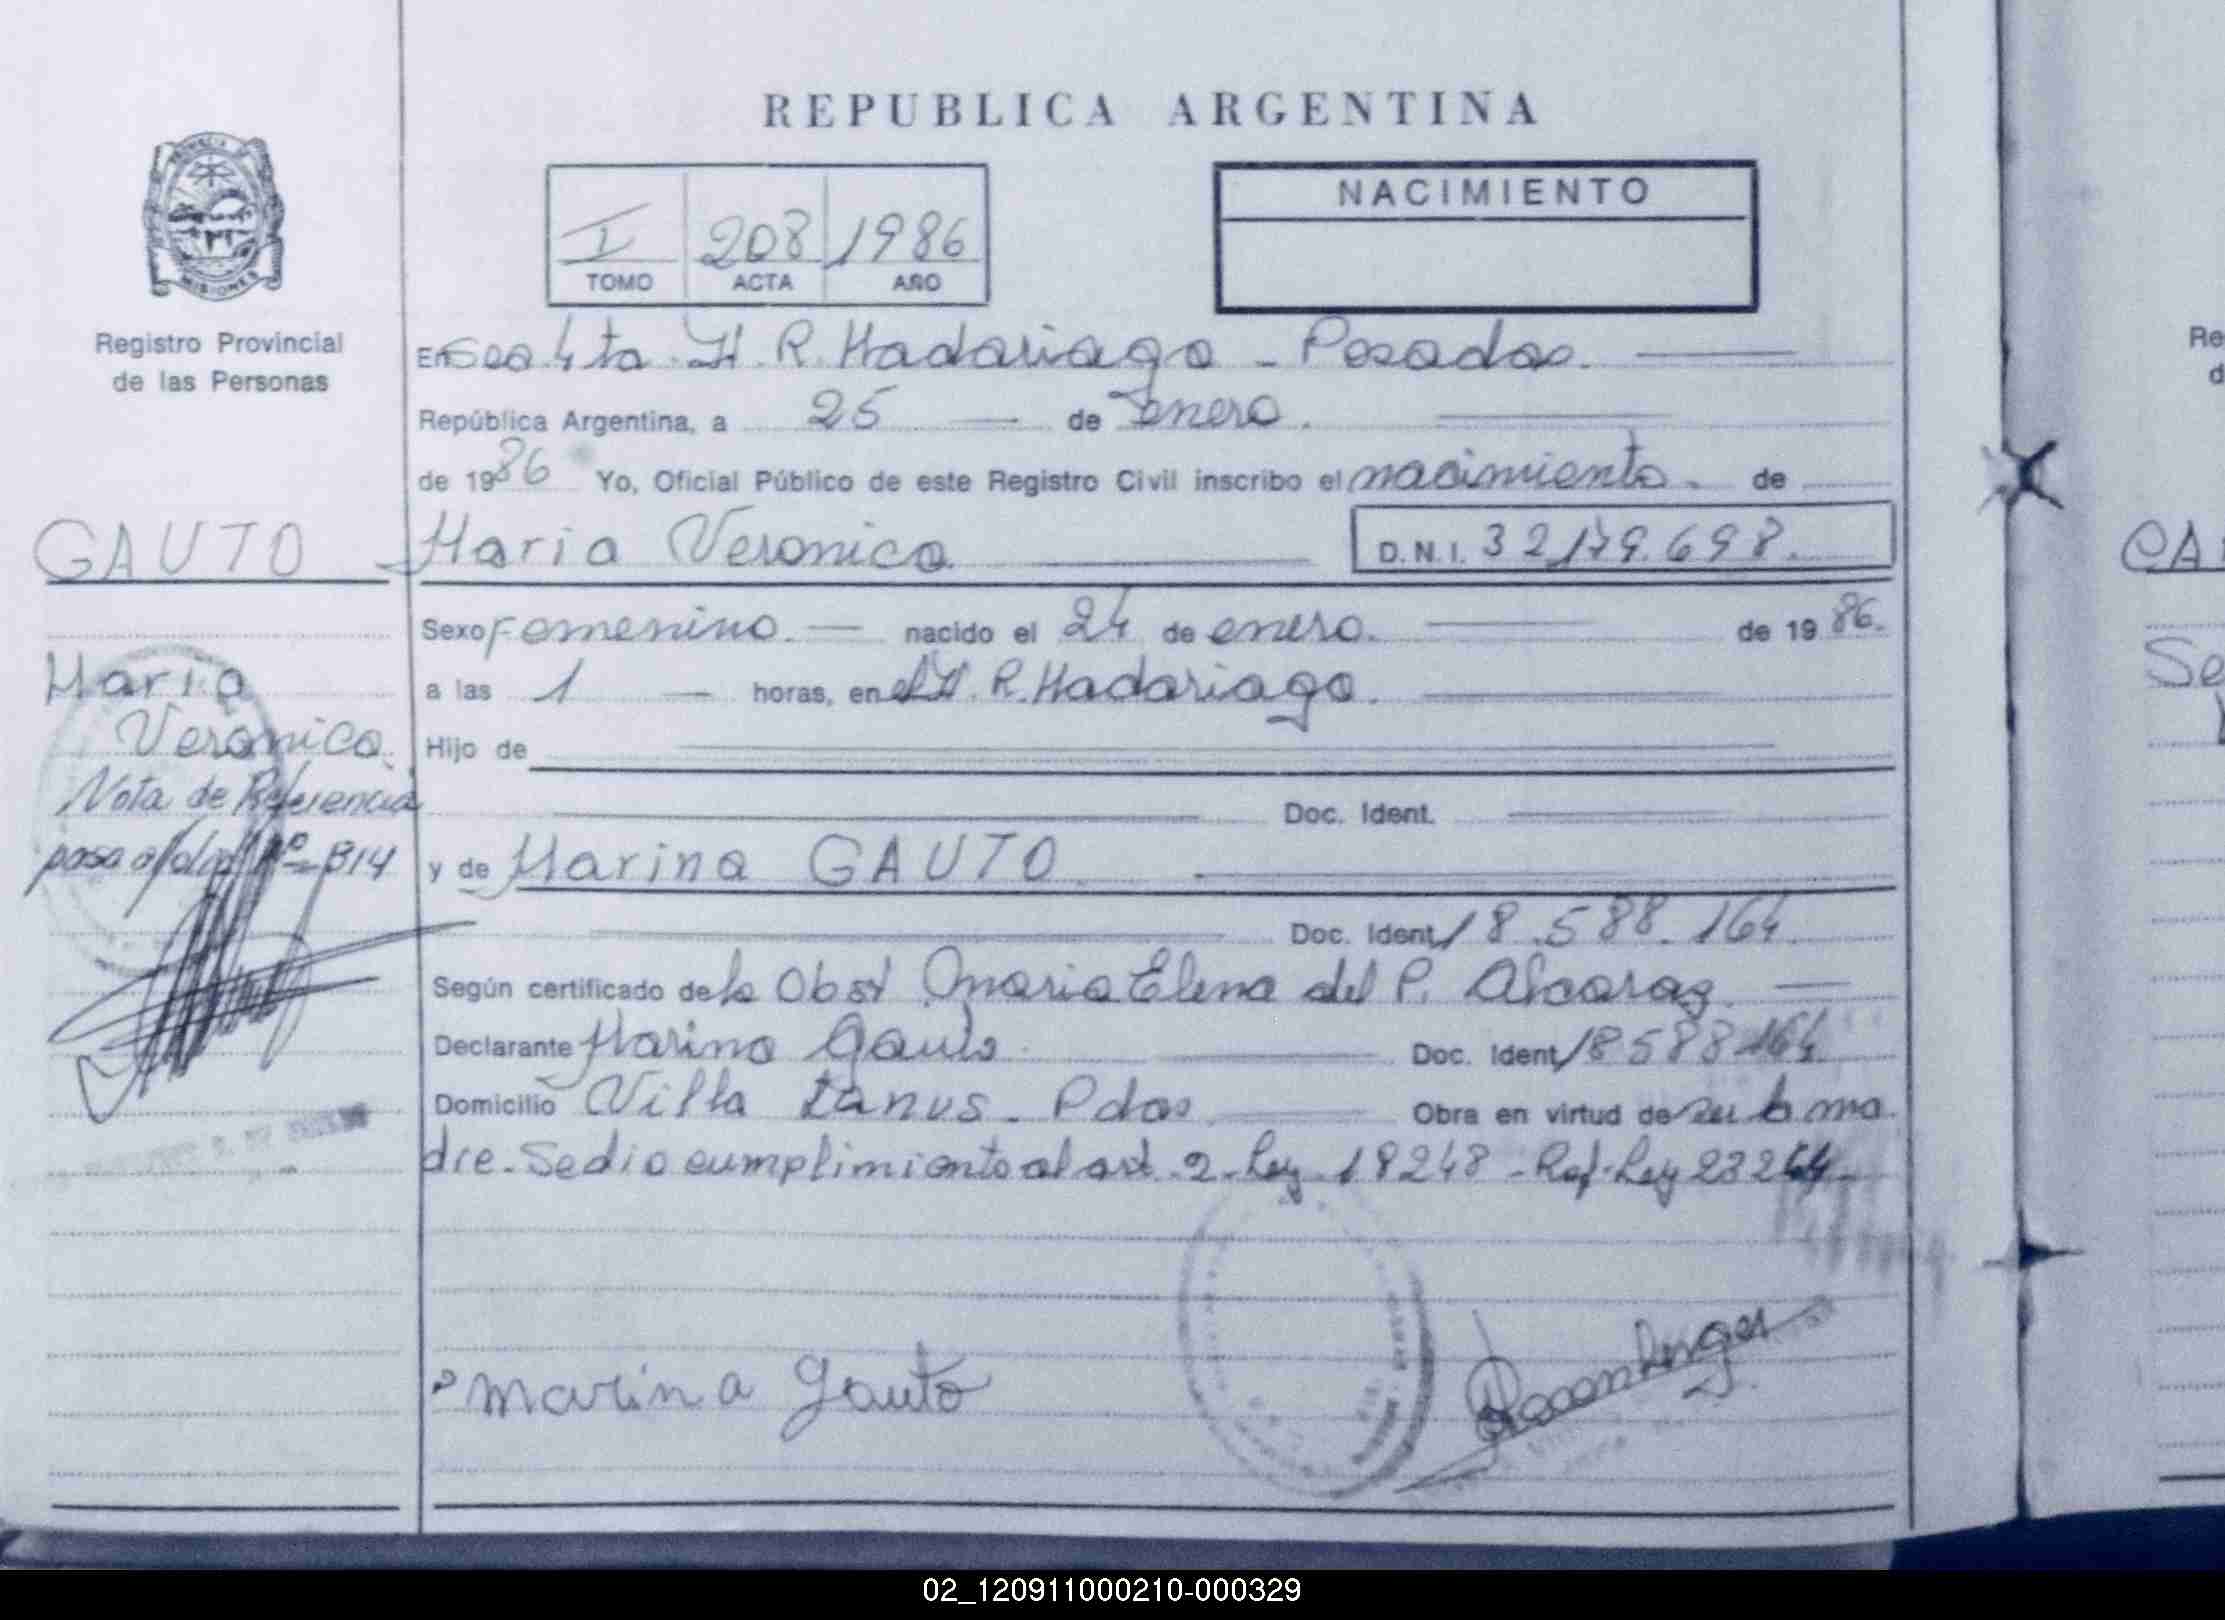 REPUBLICA ARGENTINA
PROVINCIA DE
MISIONES
Registro Provincial
de las Personas
I 208 1986
TOMO ACTA AÑO
NACIMIENTO
En Secc. 4ta. H. R. Madariaga - Posadas.
República Argentina, a 25 de enero.
de 1986 Yo, Oficial Público de este Registro Civil inscribo el nacimiento. de
GAUTO Maria Veronica D.N.I. 32.179.698.
Sexo Femenino. nacido el 24 de enero. de 1986.
Maria
a las 1 horas, en el H. R. Madariaga.
Veronica.
Hijo de
Nota de Referencia
Doc. Ident.
pasa al folio Nº 314
y de Marina GAUTO
Doc. Ident. 18.588.164
Según certificado de la Obst. Maria Elena del P. Alcaraz.
Declarante Marina Gauto. Doc. Ident. 18588164
Domicilio Villa Lanus - Pdas. Obra en virtud de su b ma
dre. Se dio cumplimiento al art. 2 - Ley 18248 - Ref. Ley 23264
Marina Gauto
CA
Se
Re
d
02_120911000210-000329